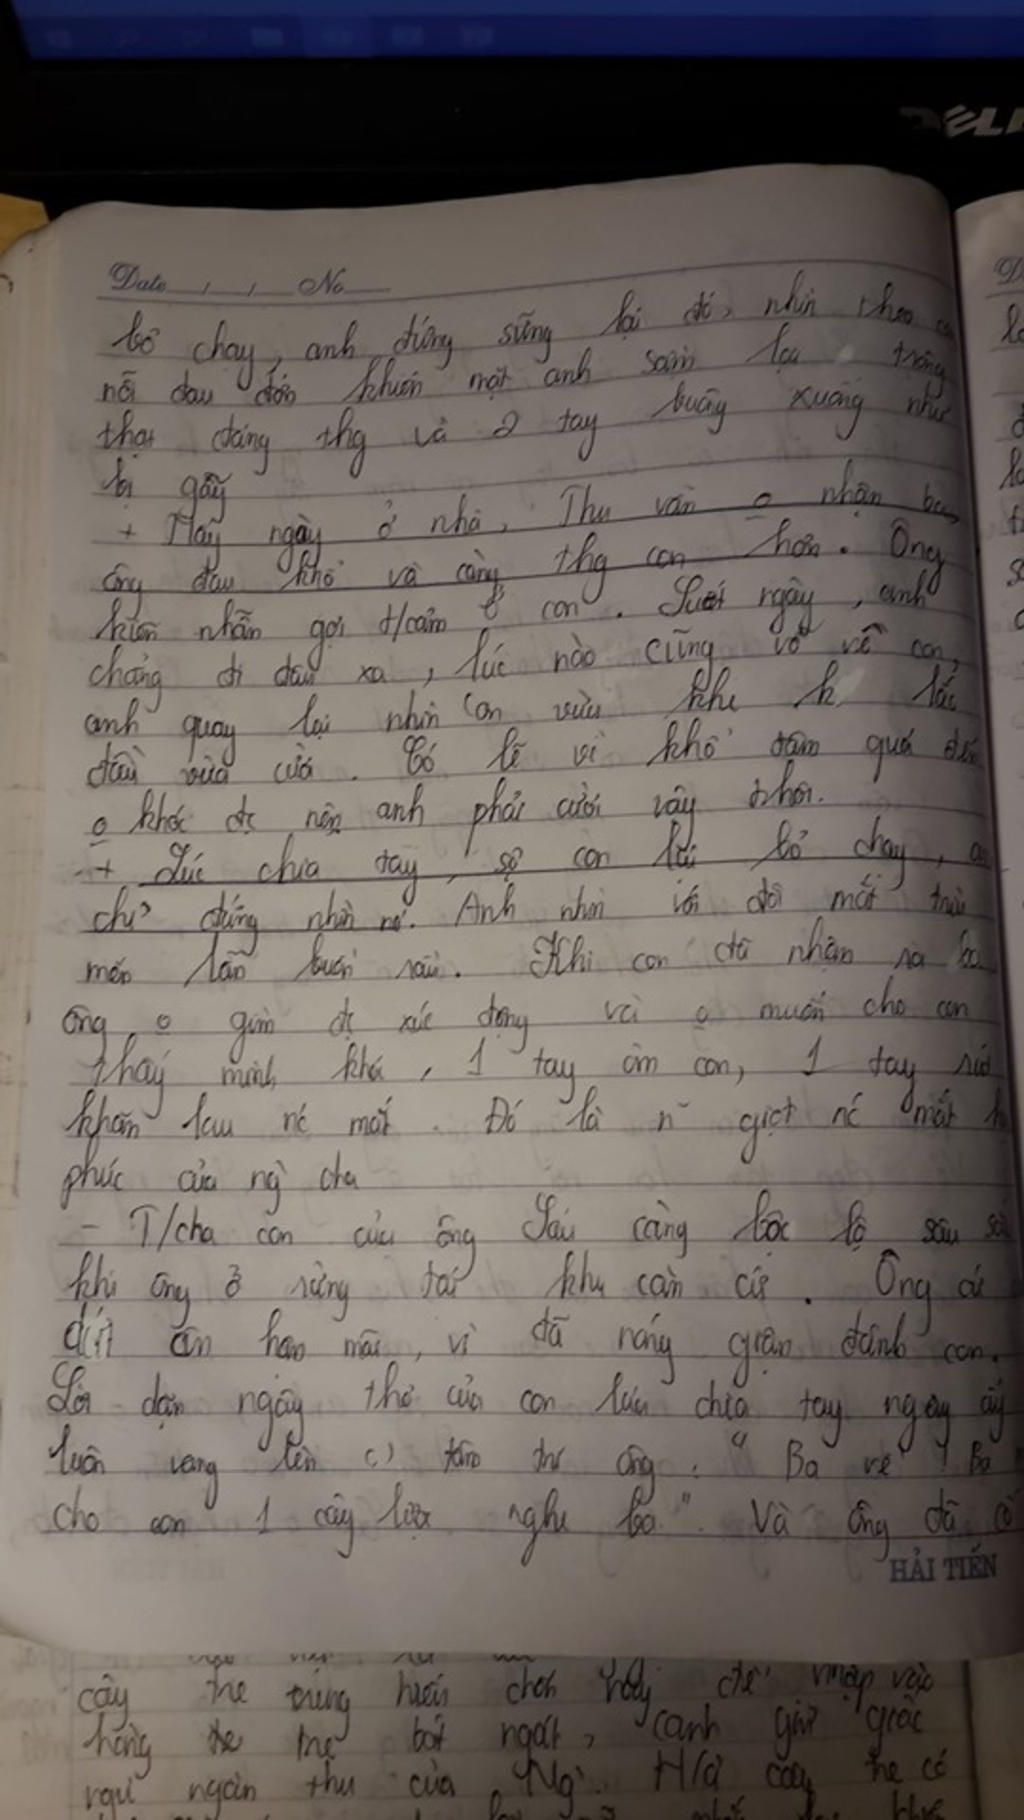 DELL
Date / / No
bỏ chạy, anh đứng sững lại đó, nhìn theo con
nỗi đau đớn khiến mặt anh sầm lại trông
thật đáng thg và 2 tay buông xuống như
bị gãy
+ Mấy ngày ở nhà, Thu vẫn o nhận ba,
ông đau khổ và càng thg con hơn. Ông
kiên nhẫn gợi t/cảm ở con. Suốt ngày, anh
chẳng đi đâu xa, lúc nào cũng vỗ về con,
anh quay lại nhìn con vừa khe k lắc
đầu vừa cười. Có lẽ vì khổ tâm quá đến
o khóc đc nên anh phải cười vậy thôi.
+ Lúc chia tay, sợ con lại bỏ chạy,
chỉ đứng nhìn nó. Anh nhìn với đôi mắt trìu
mến lẫn buồn rầu. Khi con đã nhận ra ba
ông o gìm đc xúc động và o muốn cho con
thấy mình khó, 1 tay ôm con, 1 tay rút
khăn lau nc mắt. Đó là n~ giọt nc mắt h
phúc của ng` cha
- T/cha con của ông Sáu càng bộc lộ sâu sắ
khi ông ở rừng tại khu căn cứ. Ông
ân hận mãi, vì đã nóng giận đánh con.
Lời dặn ngây thơ của con lúc chia tay ngày ấy
luôn vang lên () tâm trí ông: " Ba về ! Ba
cho con 1 cây lược nghe ba". Và ông đã
HẢI TIẾN
cây tre trúng hiến chốn này để nhập vào
hàng tre mẹ bát ngát, canh giữ giấc
ngủ ngàn thu của Ng`. H/ả cây tre có